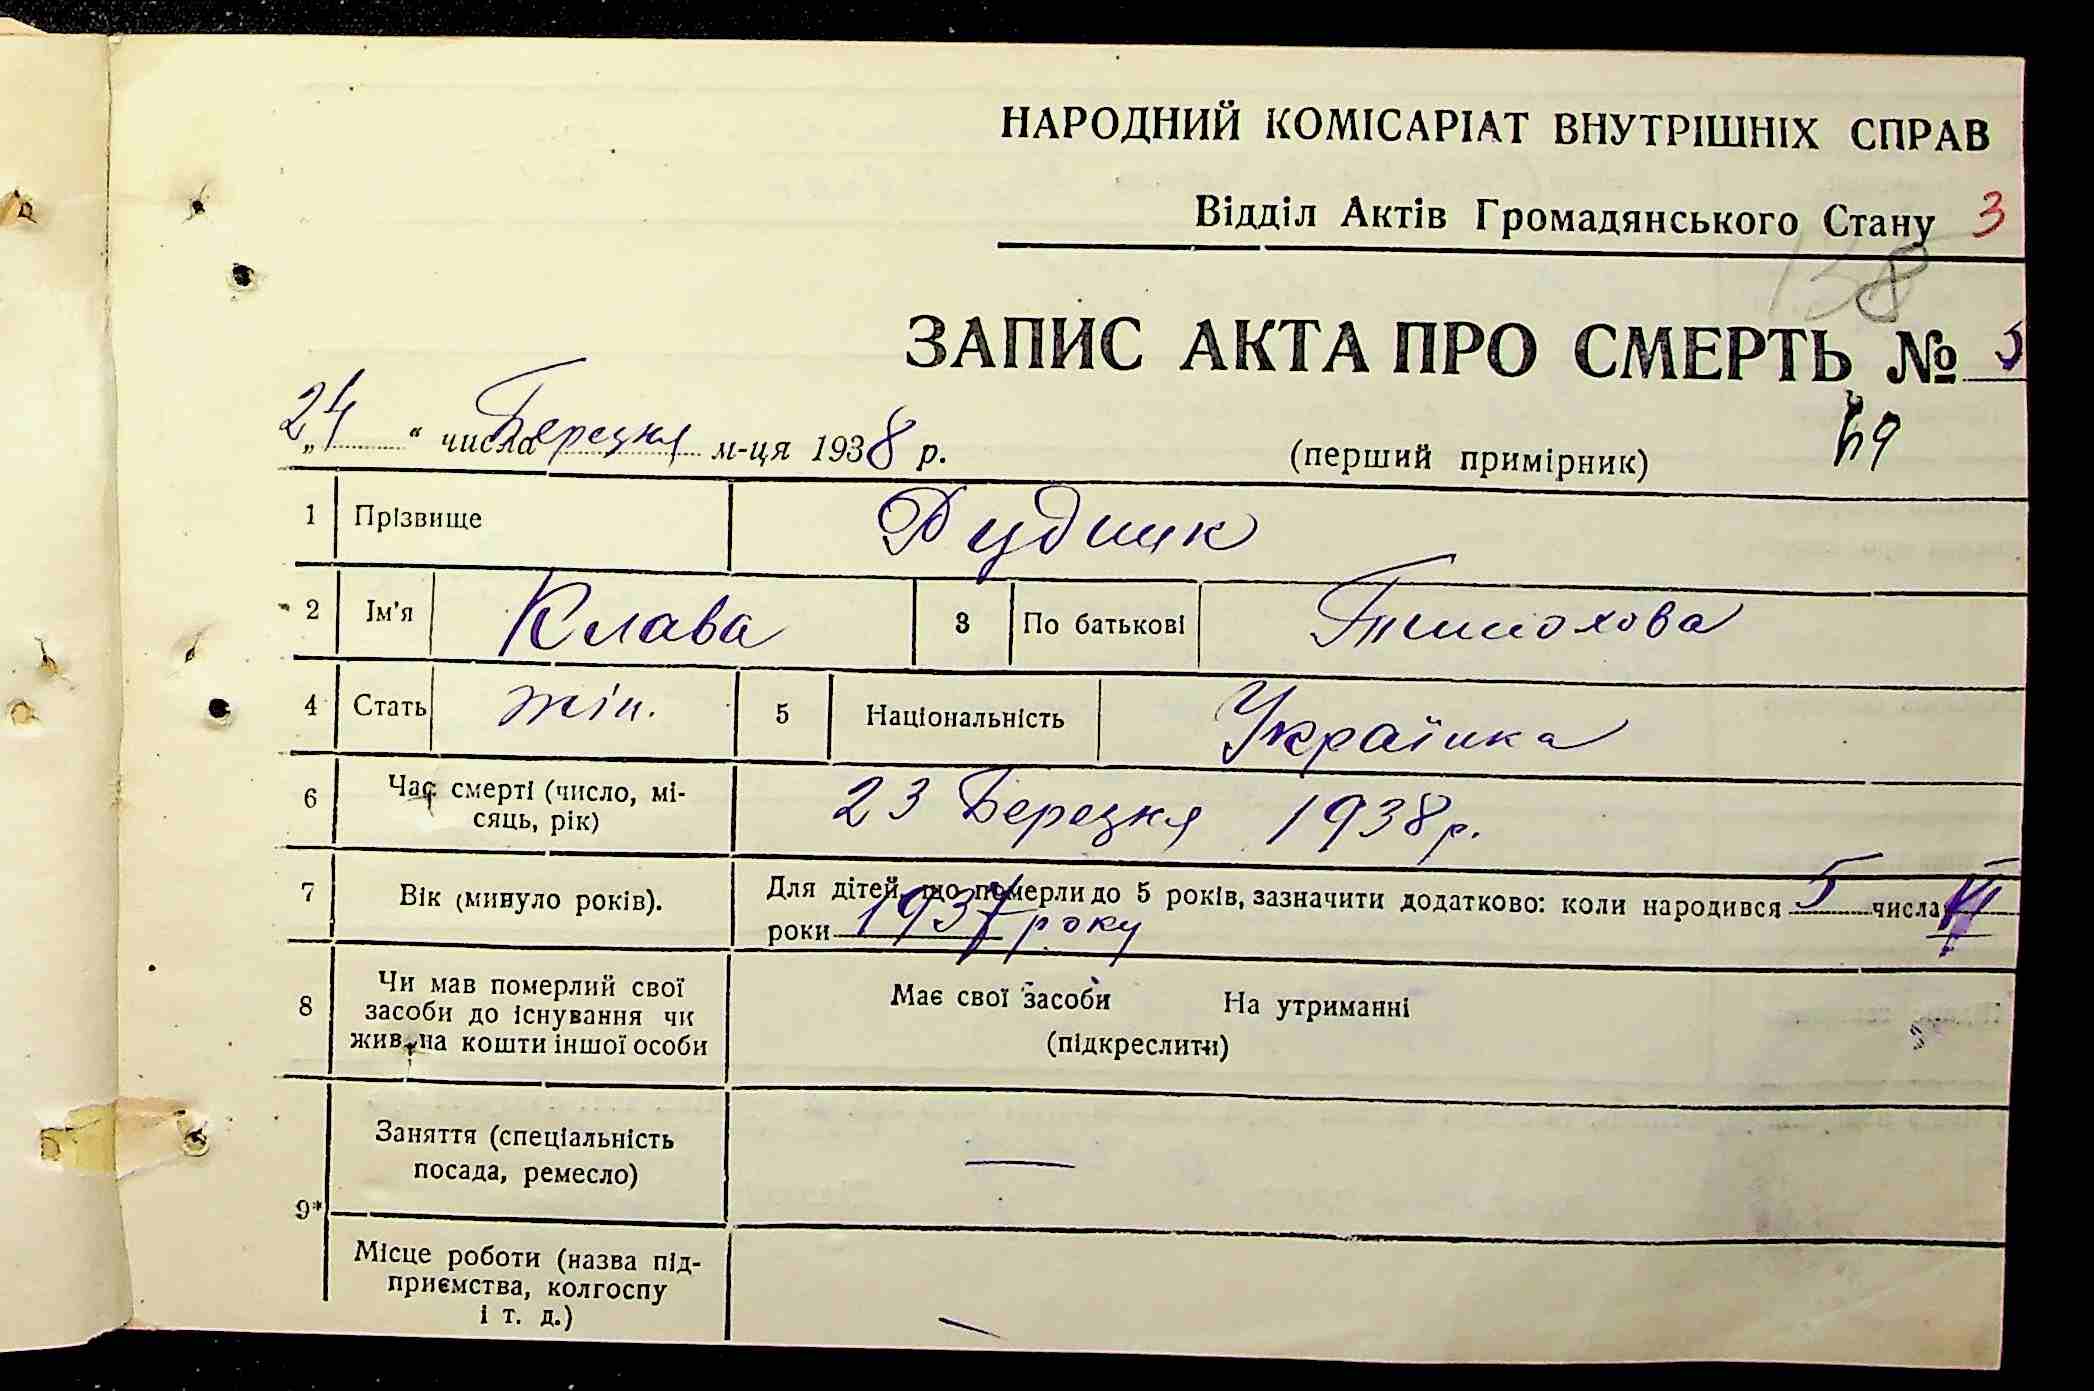 НАРОДНИЙ КОМІСАРІАТ ВНУТРІШНІХ СПРАВ
Відділ Актів Громадянського Стану 3
138
ЗАПИС АКТА ПРО СМЕРТЬ № 5
„24“ числа Березня м-ця 1938 р. (перший примірник)
1 Прізвище Рудник
2 Ім'я Клава 3 По батькові Тимохова
4 Стать жін. 5 Національність Українка
6 Час смерті (число, мі-
сяць, рік) 23 Березня 1938 р.
7 Вік (минуло років). Для дітей, що померли до 5 років, зазначити додатково: коли народився 5 числа VI
роки 1937 року
8 Чи мав померлий свої
засоби до існування чи
жив на кошти іншої особи
Має свої засоби На утриманні
(підкреслити)
9* Заняття (спеціальність
посада, ремесло) —
Місце роботи (назва під-
приємства, колгоспу
і т. д.) —